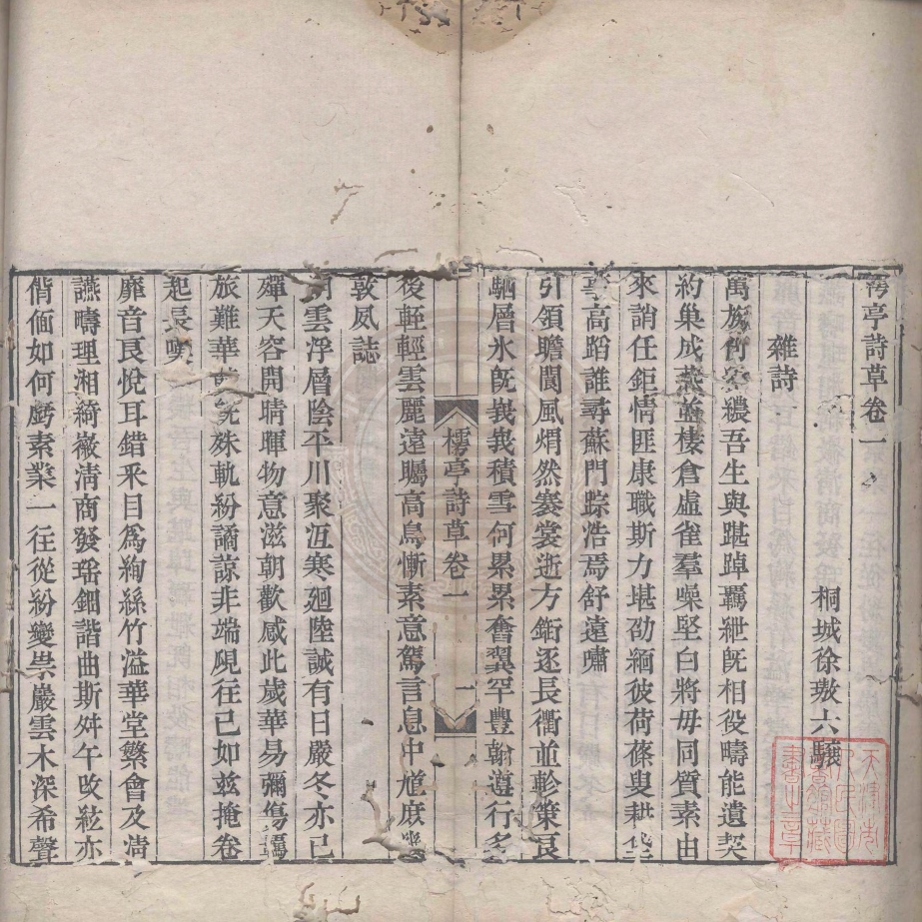 樗亭詩草卷一
桐城徐璈六驤
雜詩
萬族會紛穠吾生與踸踔羈紲旣相役疇能遺契
約巢成燕並棲倉虛雀羣噪堅白將毋同質素由
來誚任鉅情匪康職斯力堪劭緬彼荷蓧叟耕
亭高蹈誰尋蘇門踪浩焉舒遠嘯
引領瞻閬風熠然褰裳逝方銜逐長衢並軫策艮
駟層氷旣峩峩積雪何累累奮翼罕豐翰遵行多
樗亭詩草卷一
一
後軽輕雲麗遠矚高鳥慚素意駕言息中馗庶幾
敦夙誌
朔雲浮層陰平川聚沍寒廻陸誠有日嚴冬亦已
殫天容開晴暉物意滋朝歡感此歲華易彌傷羈
旅難華殊軌紛譎諒非端覛往已如玆掩卷
起長嘆
靡音艮悅耳錯釆目爲絢絲竹溢華堂繁會及淸
讌疇理湘綺嶶淸商發瑤鈿諧曲斯舛午攺絃亦
偕偭如何虧素業一往從紛變崇巖雲木深希聲
天津市人民圖書館藏書之章